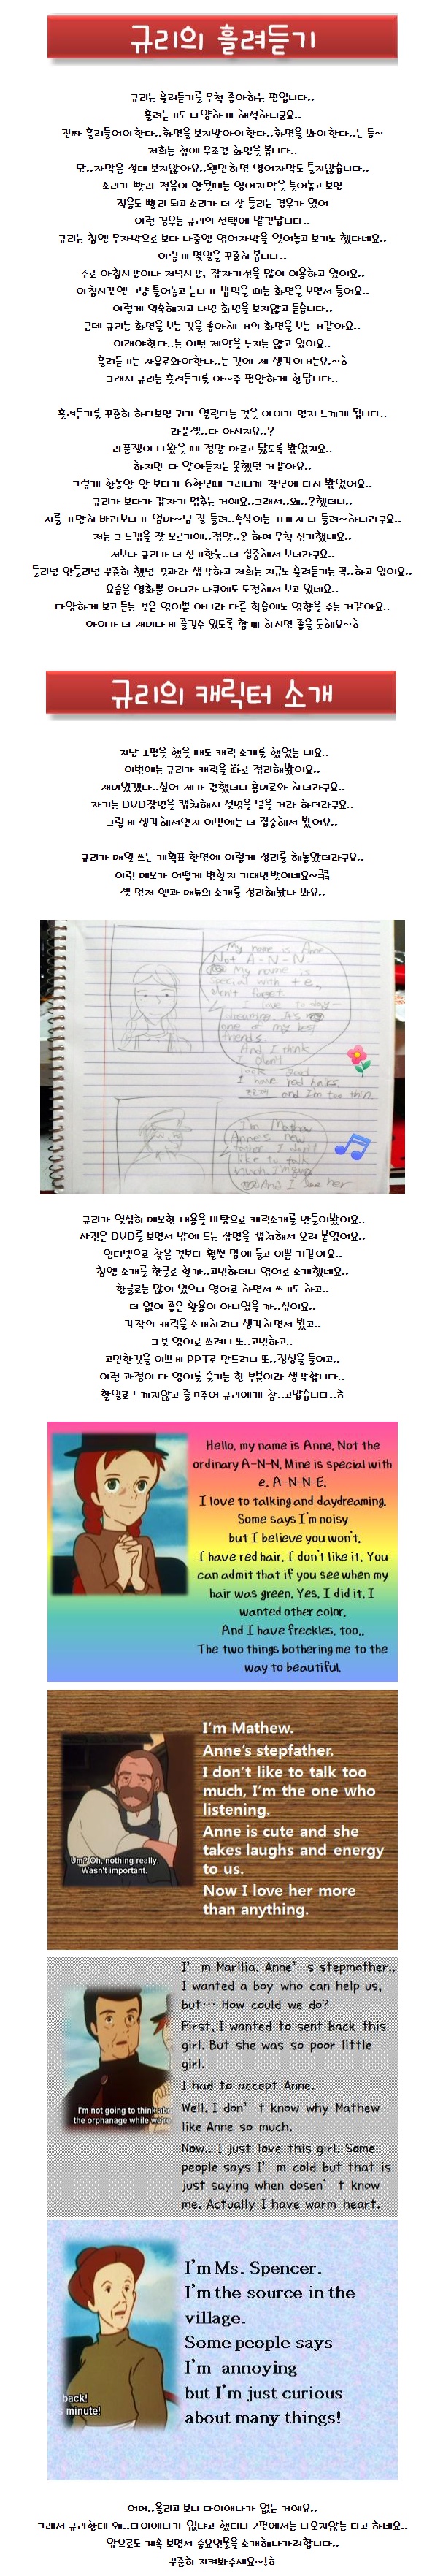 규리의 흘려듣기
규리는 흘려듣기를 무척 좋아하는 편입니다..
흘려듣기도 다양하게 해석하더군요..
진짜 흘려들어야한다..화면을 보지말아야한다..화면을 봐야한다..는 등~
저희는 첨에 무조건 화면을 봅니다..
단..자막은 절대 보지않아요..웬만하면 영어자막도 틀지않습니다..
소리가 빨라 적응이 안될때는 영어자막을 틀어놓고 보면
적응도 빨리 되고 소리가 더 잘 들리는 경우가 있어
이런 경우는 규리의 선택에 맡긴답니다..
규리는 첨엔 무자막으로 보다 나중엔 영어자막을 열어놓고 보기도 했다네요..
이렇게 몇일을 꾸준히 봅니다..
주로 아침시간이나 저녁시간, 잠자기전을 많이 이용하고 있어요..
아침시간엔 그냥 틀어놓고 듣다가 밥먹을 때는 화면을 보면서 들어요..
이렇게 익숙해지고 나면 화면을 보지않고 듣습니다..
근데 규리는 화면을 보는 것을 좋아해 거의 화면을 보는 거같아요..
이래야한다..는 어떤 제약을 두지는 않고 있어요..
흘려듣기는 자유로와야한다..는 것에 제 생각이거든요.~ㅎ
그래서 규리는 흘려듣기를 아~주 편안하게 한답니다..
흘려듣기를 꾸준히 하다보면 귀가 열린다는 것을 아이가 먼저 느끼게 됩니다..
라푼젤..다 아시지요..?
라푼젤이 나왔을 때 정말 마르고 닳도록 봤었지요..
하지만 다 알아듣지는 못했던 거같아요..
그렇게 한동안 안 보다가 6학년때 그러니까 작년에 다시 봤었어요..
규리가 보다가 갑자기 멈추는 거에요..그래서..왜..?했더니..
저를 가만히 바라보다가 엄마~넘 잘 들려..속삭이는 거까지 다 들려~하더라구요..
저는 그 느낌을 잘 모르기에..정말..? 하며 무척 신기했네요..
저보다 규리가 더 신기한듯..더 집중해서 보더라구요..
들리던 안들리던 꾸준히 했던 결과라 생각하고 저희는 지금도 흘려듣기는 꼭..하고 있어요..
요즘은 영화뿐 아니라 다큐에도 도전해서 보고 있네요..
다양하게 보고 듣는 것은 영어뿐 아니라 다른 학습에도 영향을 주는 거같아요..
아이가 더 재미나게 즐길수 있도록 함께 하시면 좋을 듯해요~ㅎ
규리의 캐릭터 소개
지난 1편을 했을 때도 캐릭 소개를 했었는 데요..
이번에는 규리가 캐릭을 따로 정리해봤어요..
재미있겠다..싶어 제가 권했더니 흥미로와 하더라구요..
자기는 DVD장면을 캡쳐해서 설명을 넣을 거라 하더라구요..
그렇게 생각해서인지 이번에는 더 집중해서 봤어요..
규리가 매일 쓰는 계획표 한면에 이렇게 정리를 해놓았더라구요..
이런 메모가 어떻게 변할지 기대만발이네요~ㅋㅋ
젤 먼저 앤과 매튜의 소개를 정리해놨나 봐요..
My name is Anne
Not A-N-N
My name is
special with + e,
don't forget.
I love to day-
dreaming. It's
one of my best
friends.
And I think
I don't
look good.
I have red hairs
and I'm too thin.
I'm Mathew
Anne's now
father. I don't
like to talk
much. I'm
And I love her
규리가 열심히 메모한 내용을 바탕으로 캐릭소개를 만들어봤어요..
사진은 DVD를 보면서 맘에 드는 장면을 캡쳐해서 오려 붙였어요..
인터넷으로 찾은 것보다 훨씬 맘에 들고 이쁜 거같아요..
첨엔 소개를 한글로 할까..고민하더니 영어로 소개했네요..
한글로는 많이 있으니 영어로 하면서 쓰기도 하고..
더 없이 좋은 활용이 아니었을 까..싶어요..
각각의 캐릭을 소개하려니 생각하면서 봤고..
그걸 영어로 쓰려니 또..고민하고..
고민한것을 이쁘게 PPT로 만드려니 또..정성을 들이고..
이런 과정이 다 영어를 즐기는 한 부분이라 생각합니다..
할일로 느끼지않고 즐겨주어 규리에게 참..고맙습니다..ㅎ
Hello, my name is Anne. Not the
ordinary A-N-N. Mine is special with
e. A-N-N-E.
I love to talking and daydreaming.
Some says I'm noisy
but I believe you won't.
I have red hair. I don't like it. You
can admit that if you see when my
hair was green. Yes. I did it. I
wanted other color.
And I have freckles. too..
The two things bothering me to the
way to beautiful.
I'm Mathew.
Anne's stepfather.
I don't like to talk too
much, I'm the one who
listening.
Anne is cute and she
takes laughs and energy
to us.
Now I love her more
than anything.
Um? Oh, nothing really.
Wasn't important.
I'm Marilia. Anne's stepmother..
I wanted a boy who can help us,
but… How could we do?
First, I wanted to sent back this
girl. But she was so poor little
girl.
I had to accept Anne.
Well, I don't know why Mathew
like Anne so much.
Now.. I just love this girl. Some
people says I'm cold but that is
just saying when dosen't know
me. Actually I have warm heart.
I'm not going to think abo
the orphanage while we're
I'm Ms. Spencer.
I'm the source in the
village.
Some people says
I'm annoying
but I'm just curious
about many things!
back!
minute!
어머..올리고 보니 다이애나가 없는 거에요..
그래서 규리한테 왜..다이애나가 없냐고 했더니 2편에서는 나오지않는 다고 하네요..
앞으로도 계속 보면서 중요인물을 소개해나가려합니다..
꾸준히 지켜봐주세요~!ㅎ